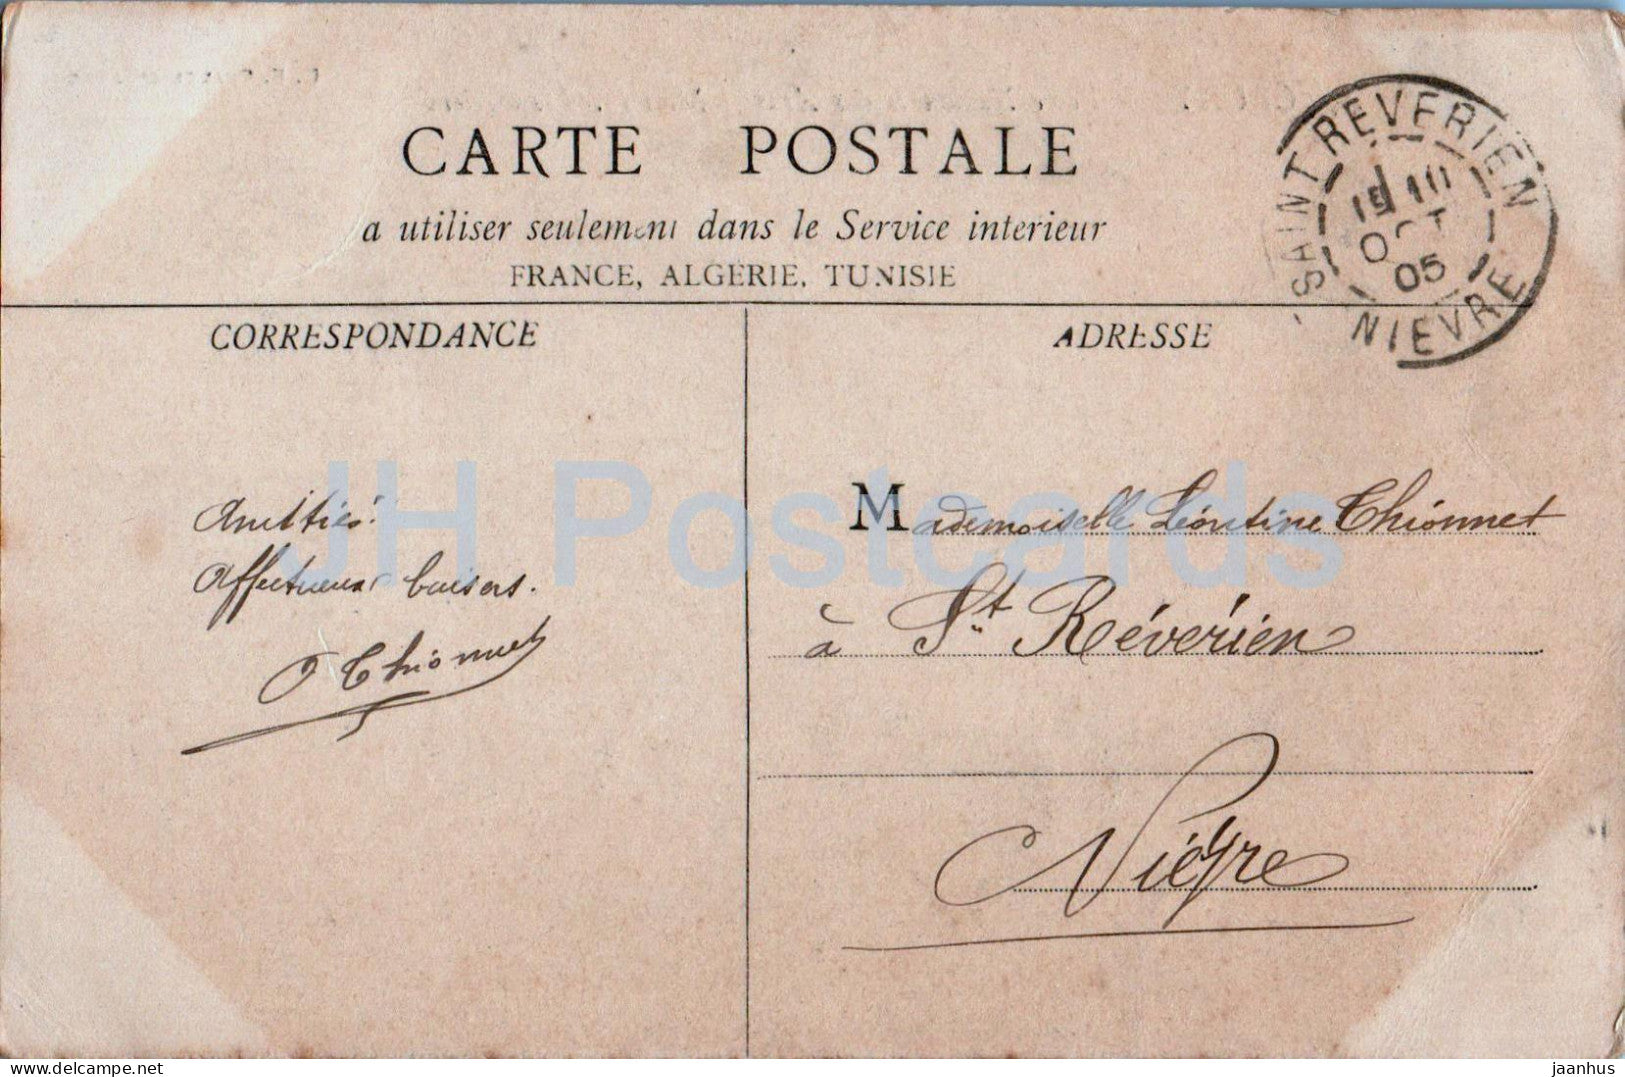 CARTE POSTALE
a utiliser seulement dans le Service interieur
FRANCE, ALGERIE, TUNISIE
SAINT REVERIEN
10
OCT
05
NIEVRE
CORRESPONDANCE
ADRESSE
Amitiés.
Affectueux baisers.
Thionnet
Mademoiselle Léontine Thionnet
à St Révérien
Nièvre
JH Postcards
www.delcampe.net
jaanhus